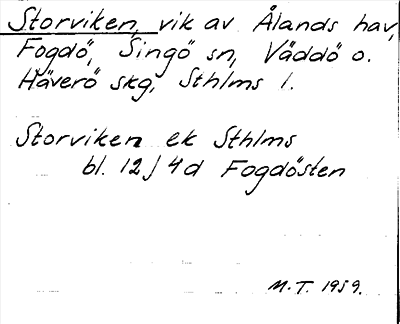 Storviken, vik av Ålands hav,
Fogdö, Singö sn, Väddö o.
Häverö skg, Sthlms l.
Storviken ek Sthlms
bl. 12J4d Fogdösten
M.T. 1959.